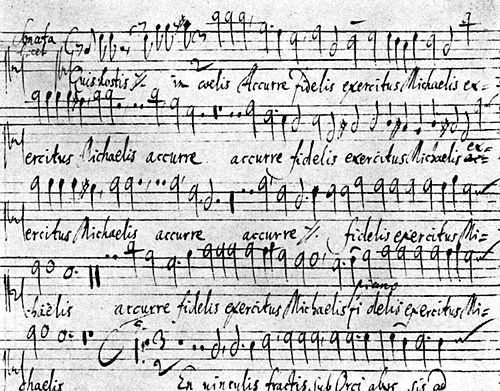 Sonata
tacet
Quis hostis /. in coelis Accurre fidelis exercitus Michaelis ex-
ercitus Michaelis accurre accurre fidelis exercitus Michaelis ex-
ercitus Michaelis accurre accurre /. fidelis exercitus Mi-
piano
chaëlis accurre fidelis exercitus Michaelis fidelis exercitus Mi-
chaelis En vinculis fractis, sub Orci